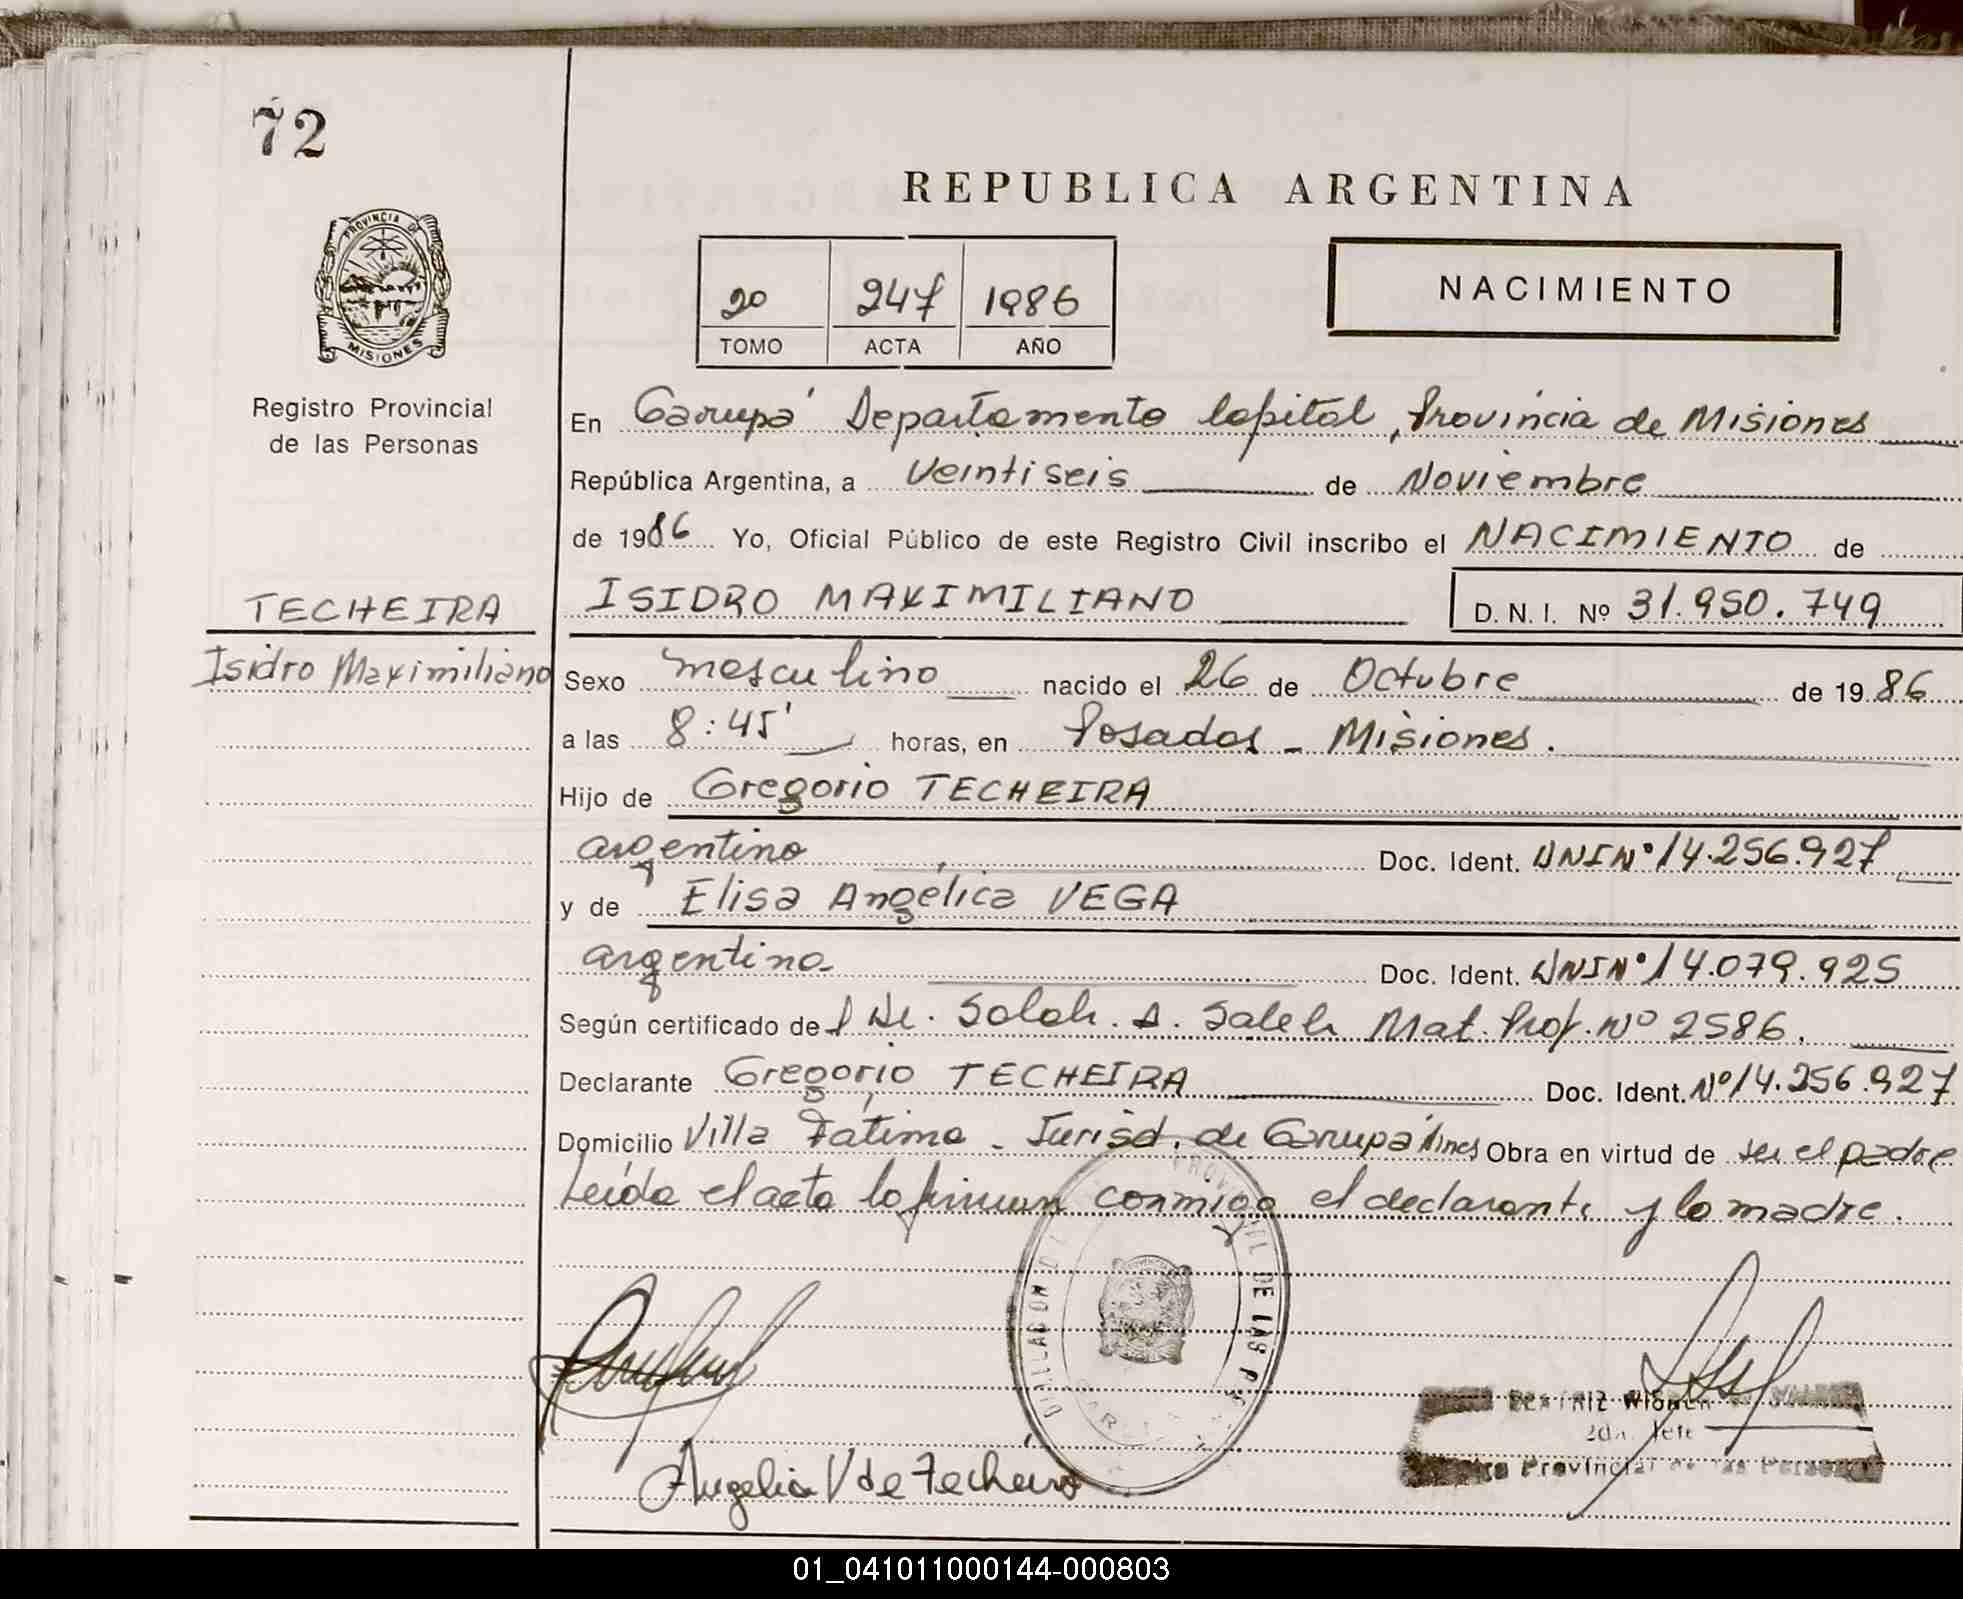 72
REPUBLICA ARGENTINA
PROVINCIA DE
MISIONES
Registro Provincial
de las Personas
2º 247 1986
TOMO ACTA AÑO
NACIMIENTO
En Garupá Departamento Capital, Provincia de Misiones
República Argentina, a Veintiseis de Noviembre
de 1986 Yo, Oficial Público de este Registro Civil inscribo el NACIMIENTO de
TECHEIRA
Isidro Maximiliano
ISIDRO MAXIMILIANO D. N. I. Nº 31.950.749
Sexo masculino nacido el 26 de Octubre de 1986
a las 8:45' horas, en Posadas - Misiones.
Hijo de Gregorio TECHEIRA
argentino Doc. Ident. DNI Nº 14.256.927
y de Elisa Angélica VEGA
argentina Doc. Ident. DNI Nº 14.079.925
Según certificado del Dr. Saleh. A. Saleh Mat. Prof. Nº 2586.
Declarante Gregorio TECHEIRA Doc. Ident. Nº 14.256.927
Domicilio Villa Fátima - Jurisd. de Garupá Mnes Obra en virtud de ser el padre
Leída el acta la firman conmigo el declarante y la madre.
DE LAS
Angelica V de Techeira
BEATRIZ
2da. Jefe
Provincial de las Personas
01_041011000144-000803